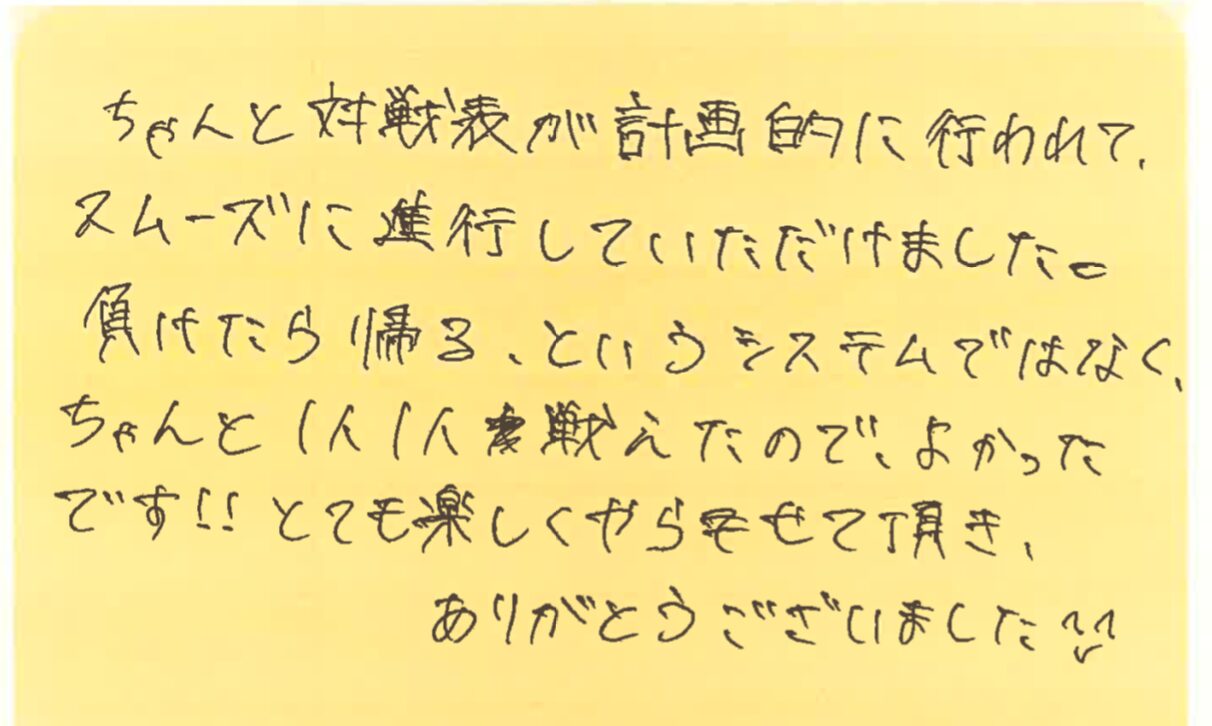 ちゃんと対戦表が計画的に行われて、
スムーズに進行していただけました。
負けたら帰る、というシステムではなく、
ちゃんと1人1人戦えたので、よかった
です!!とても楽しくやらせて頂き、
ありがとうございました^^